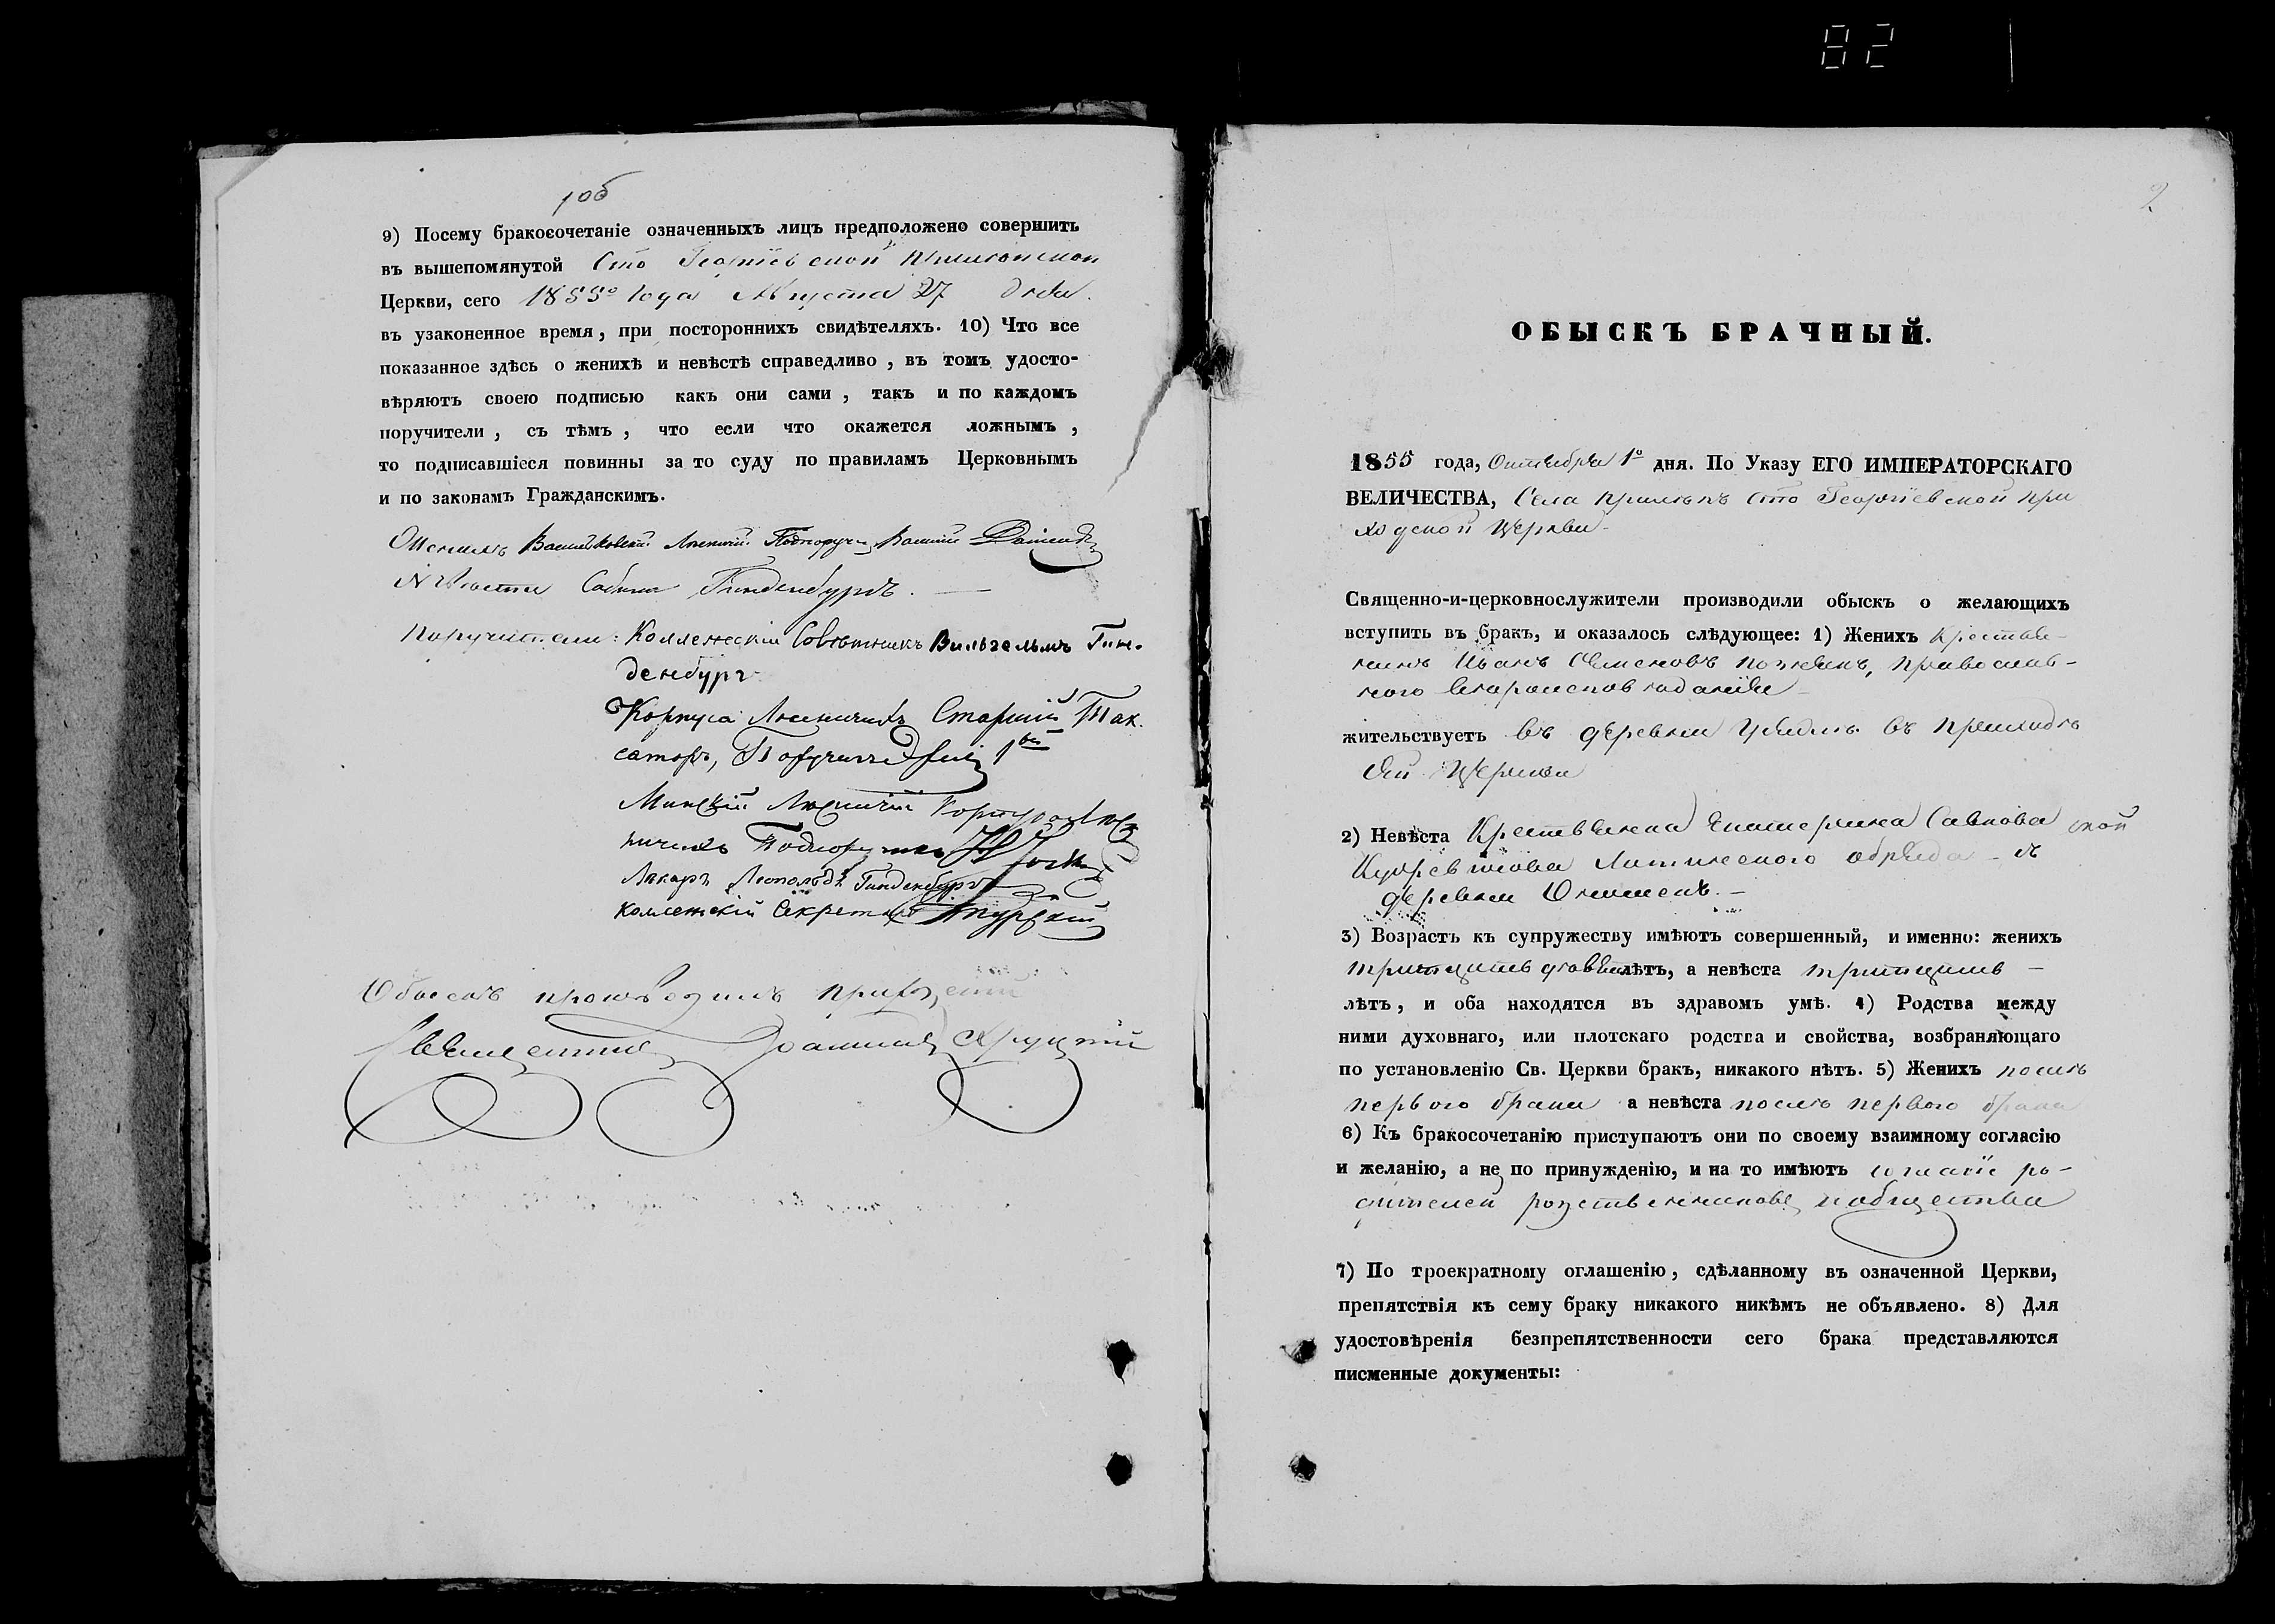 1об
9) Посему бракосочетаніе означенныхъ лицъ предположено совершить
въ вышепомянутой Сто Георгіевской
Церкви, сего 1855º года Августа 27 дня.
въ узаконенное время, при постороннихъ свидѣтеляхъ. 10) Что все
показанное здѣсь о женихѣ и невѣстѣ справедливо, въ томъ удосто-
вѣряютъ своею подписью какъ они сами, такъ и по каждомъ
поручители, съ тѣмъ, что если что окажется ложнымъ,
то подписавшіеся повинны за то суду по правиламъ Церковнымъ
и по законамъ Гражданскимъ.
Лѣсничій Подпоручикъ
Невѣста Сабина Гинденбургъ.
Поручители: Коллежскій Совѣтникъ Вильгельмъ Гин-
денбургъ
Корпуса Лѣсничихъ Старшій Так-
саторъ, Поручикъ
Минскій Лѣсничій Корпуса Лѣс
ничихъ Подпоручикъ
Лекарь Леопольдъ Гинденбургъ
Коллежскій Секретарь
Обыскъ производилъ приходскій
Священникъ Іоаннъ
82
2
ОБЫСКЪ БРАЧНЫЙ.
1855 года, Октября 1º дня. По Указу ЕГО ИМПЕРАТОРСКАГО
ВЕЛИЧЕСТВА, Села Прилѣпъ Сто Георгіевской при
ходской Церкви
Священно-и-церковнослужители производили обыскъ о желающихъ
вступить въ бракъ, и оказалось слѣдующее: 1) Женихъ Крестья-
нинъ Иванъ Семеновъ православ-
ного вѣроисповѣданія
жительствуетъ въ деревни въ приходѣ
сей Церкви
2) Невѣста Крестьянка Екатерина Савкова
Латинского обряда съ
деревни
3) Возрастъ къ супружеству имѣютъ совершенный, и именно: женихъ
тритцать лѣтъ, а невѣста тритцать
лѣтъ, и оба находятся въ здравомъ умѣ. 4) Родства между
ними духовнаго, или плотскаго родства и свойства, возбраняющаго
по установленію Св. Церкви бракъ, никакого нѣтъ. 5) Женихъ послѣ
первого брака а невѣста послѣ первого брака
6) Къ бракосочетанію приступаютъ они по своему взаимному согласію
и желанію, а не по принужденію, и на то имѣютъ согласіе ро-
дителей родственниковъ и общества
7) По троекратному оглашенію, сдѣланному въ означенной Церкви,
препятствія къ сему браку никакого никѣмъ не объявлено. 8) Для
удостовѣренія безпрепятственности сего брака представляются
писменные документы: